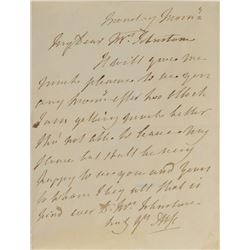 Monday Morn.g
My Dear Mr. Johnstone
It will give me
much pleasure to see you
any morn.g after two o'clock
I am getting much better
tho' not able to leave my
but shall be very
happy to see you and yours
to whom they all that is
kind ever Dr. Mr. Johnstone